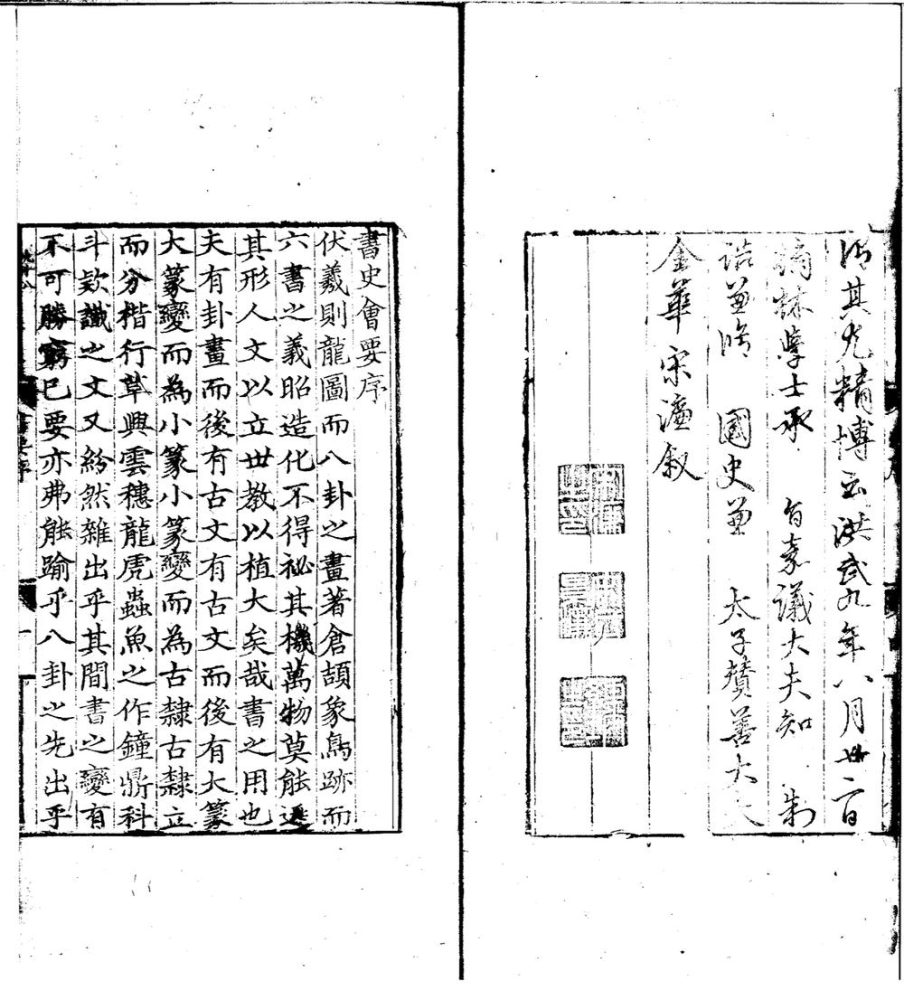 法其尤精博云洪武九年八月廿二日
翰林學士承　旨嘉議大夫知　制
誥兼脩　國史兼　太子贊善大夫
金華宋濂叙
書史會要序
伏羲則龍圖而八卦之畫著倉頡象鳥跡而
六書之義昭造化不得祕其機萬物莫能遁
其形人文以立世教以植大矣哉書之用也
夫有卦畫而後有古文有古文而後有大篆
大篆變而為小篆小篆變而為古隸古隸立
而分楷行草興雲穗龍虎蟲魚之作鐘鼎科
斗款識之文又紛然雜出乎其間書之變有
不可勝窮已要亦弗能踰乎八卦之先出乎